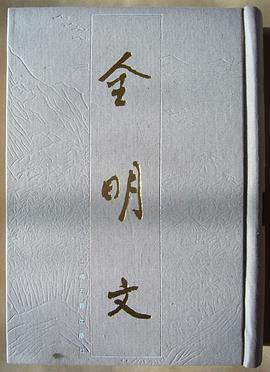 全明文